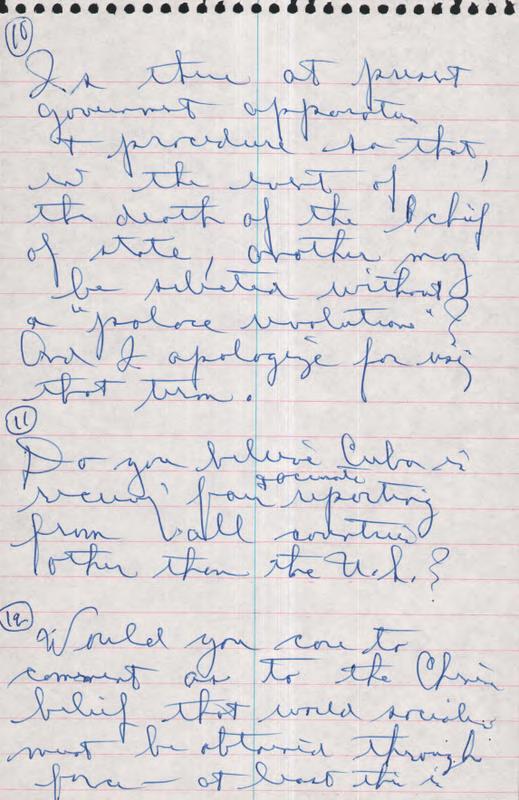 10
Is there at present
government apparatus
+ procedure so that,
in the event of
the death of the chief
of state, another may
be selected without
a "palace revolution"?
And I apologize for using
that term.
11
Do you believe Cuba is
receiving fair + accurate reporting
from all countries
other than the U.S.?
12
Would you care to
comment as to the Chinese
belief that world socialism
must be obtained through
force — at least this is